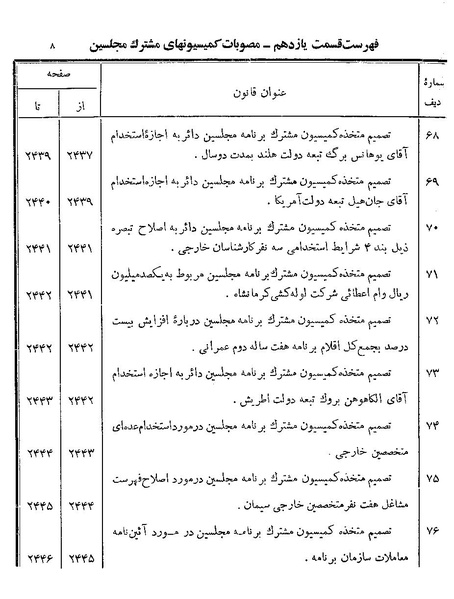 فهرست قسمت یازدهم ـ مصوبات کمیسیونهای مشترک مجلسین ۸
شمارهٔ ردیف
عنوان قانون
صفحه
از تا
۶۸ تصمیم متخذه کمیسیون مشترک برنامه مجلسین دائر به اجازهٔ استخدام
آقای یوهانس برگ تبعه دولت هلند بمدت دوسال . ۲۴۳۷ ۲۴۳۹
۶۹ تصمیم متخذه کمیسیون مشترک برنامه مجلسین دائر به اجازه استخدام
آقای جان‌هیل تبعه دولت آمریکا . ۲۴۳۹ ۲۴۴۰
۷۰ تصمیم متخذه کمیسیون مشترک برنامه مجلسین دائر به اصلاح تبصره
ذیل بند ۴ شرایط استخدامی سه نفر کارشناسان خارجی . ۲۴۴۱ ۲۴۴۱
۷۱ تصمیم متخذه کمیسیون مشترک برنامه مجلسین مربوط به یکصد میلیون
ریال وام اعطائی شرکت لوله کشی کرمانشاه . ۲۴۴۱ ۲۴۴۲
۷۲ تصمیم متخذه کمیسیون مشترک برنامه مجلسین دربارهٔ افزایش بیست
درصد بجمع کل اقلام برنامه هفت ساله دوم عمرانی . ۲۴۴۲ ۲۴۴۲
۷۳ تصمیم متخذه کمیسیون مشترک برنامه مجلسین دائر به اجازه استخدام
آقای الکاهوهن بروک تبعه دولت اطریش . ۲۴۴۲ ۲۴۴۳
۷۴ تصمیم متخذه کمیسیون مشترک برنامه مجلسین در مورد استخدام عده‌ای
متخصصین خارجی . ۲۴۴۳ ۲۴۴۴
۷۵ تصمیم متخذه کمیسیون مشترک برنامه مجلسین در مورد اصلاح فهرست
مشاغل هفت نفر متخصصین خارجی سیمان . ۲۴۴۴ ۲۴۴۵
۷۶ تصمیم متخذه کمیسیون مشترک برنامه مجلسین در مورد آئین‌نامه
معاملات سازمان برنامه . ۲۴۴۵ ۲۴۴۶